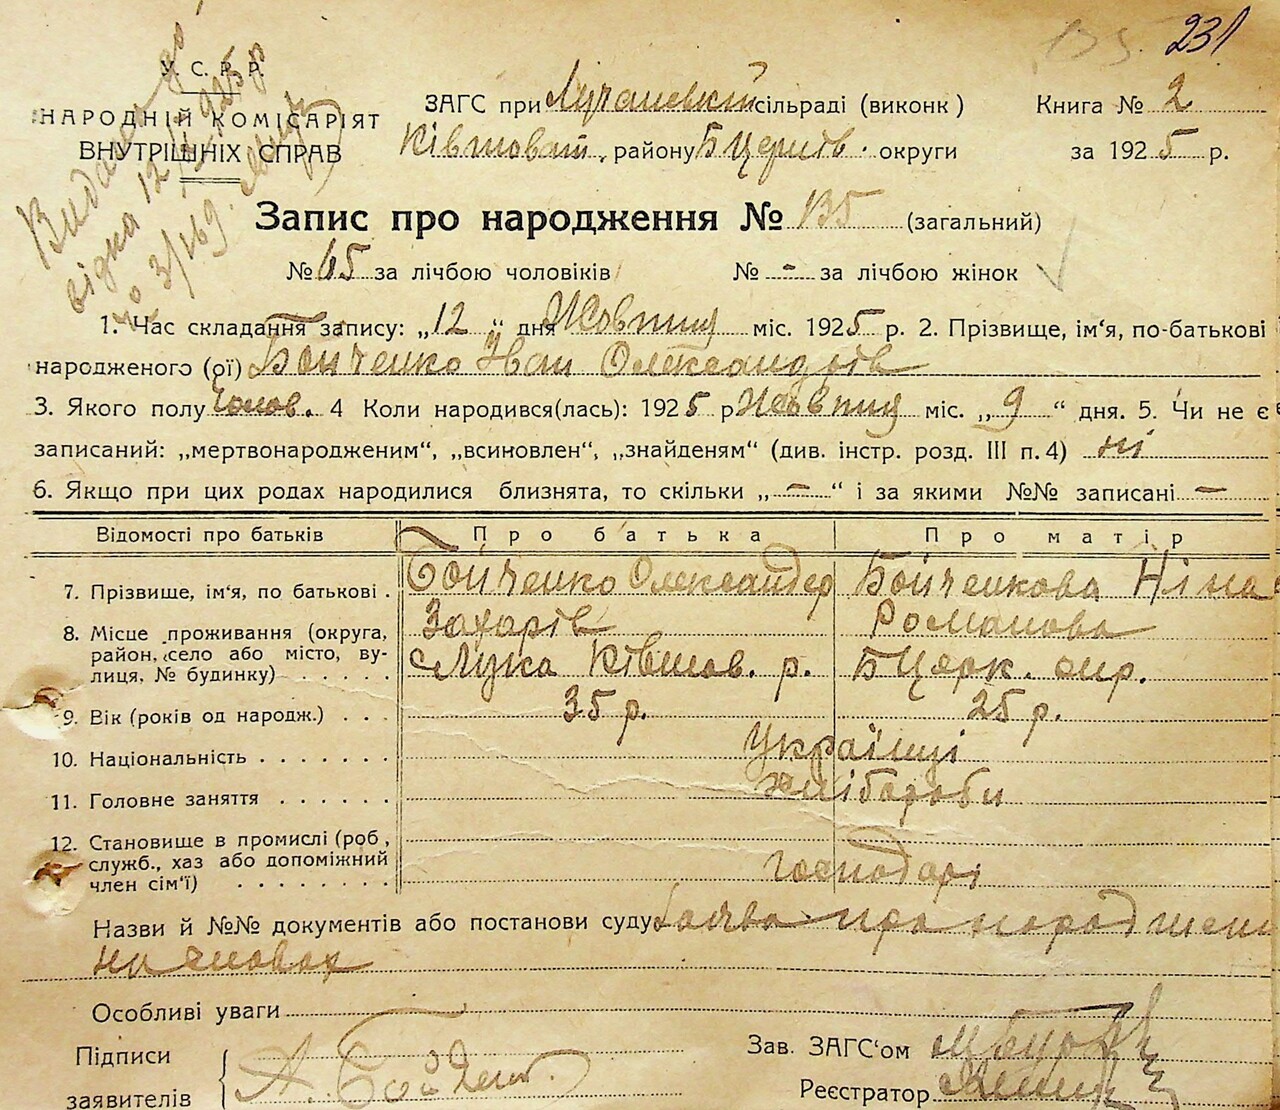 135. 231
У. С. Р. Р.
НАРОДНІЙ КОМІСАРІЯТ
ВНУТРІШНІХ СПРАВ
ЗАГС при Лучанській сільраді (виконк)
Ківшоват. району БЦерків. округи
Книга № 2
за 1925 р.
Видано
12/
3/169.
Запис про народження № 135 (загальний)
№ 65 за лічбою чоловіків № - за лічбою жінок
1. Час складання запису: „12“ дня Жовтня міс. 1925 р. 2. Прізвище, ім‘я, по-батькові
народженого (ої) Бойченко Іван Олександрів
3. Якого полу чолов. 4 Коли народився(лась): 1925 р Жовтня міс. „9“ дня. 5. Чи не є
записаний: „мертвонародженим“, „всиновлен“, „знайденям“ (див. інстр. розд. III п. 4) ні
6. Якщо при цих родах народилися близнята, то скільки „-“ і за якими №№ записані -
Відомості про батьків Про батька Про матір
7. Прізвище, ім‘я, по батькові . Бойченко Олександер Бойченкова Ніна
Захарів Романова
8. Місце проживання (округа,
район, село або місто, ву-
лиця, № будинку) . . . . . Лука Ківшов. р. БЦерк. окр.
9. Вік (років од народж.) . . . 35 р. 25 р.
10. Національність . . . . . . . Українці
11. Головне заняття . . . . . . Хлібороби
12. Становище в промислі (роб,
служб., хаз або допоміжний
член сім‘ї) . . . . . . . . Господарі
Назви й №№ документів або постанови суду Заява про народжен
на словах
Особливі уваги
Підписи
заявителів
А. Бойчен.
Зав. ЗАГС‘ом
Реєстратор